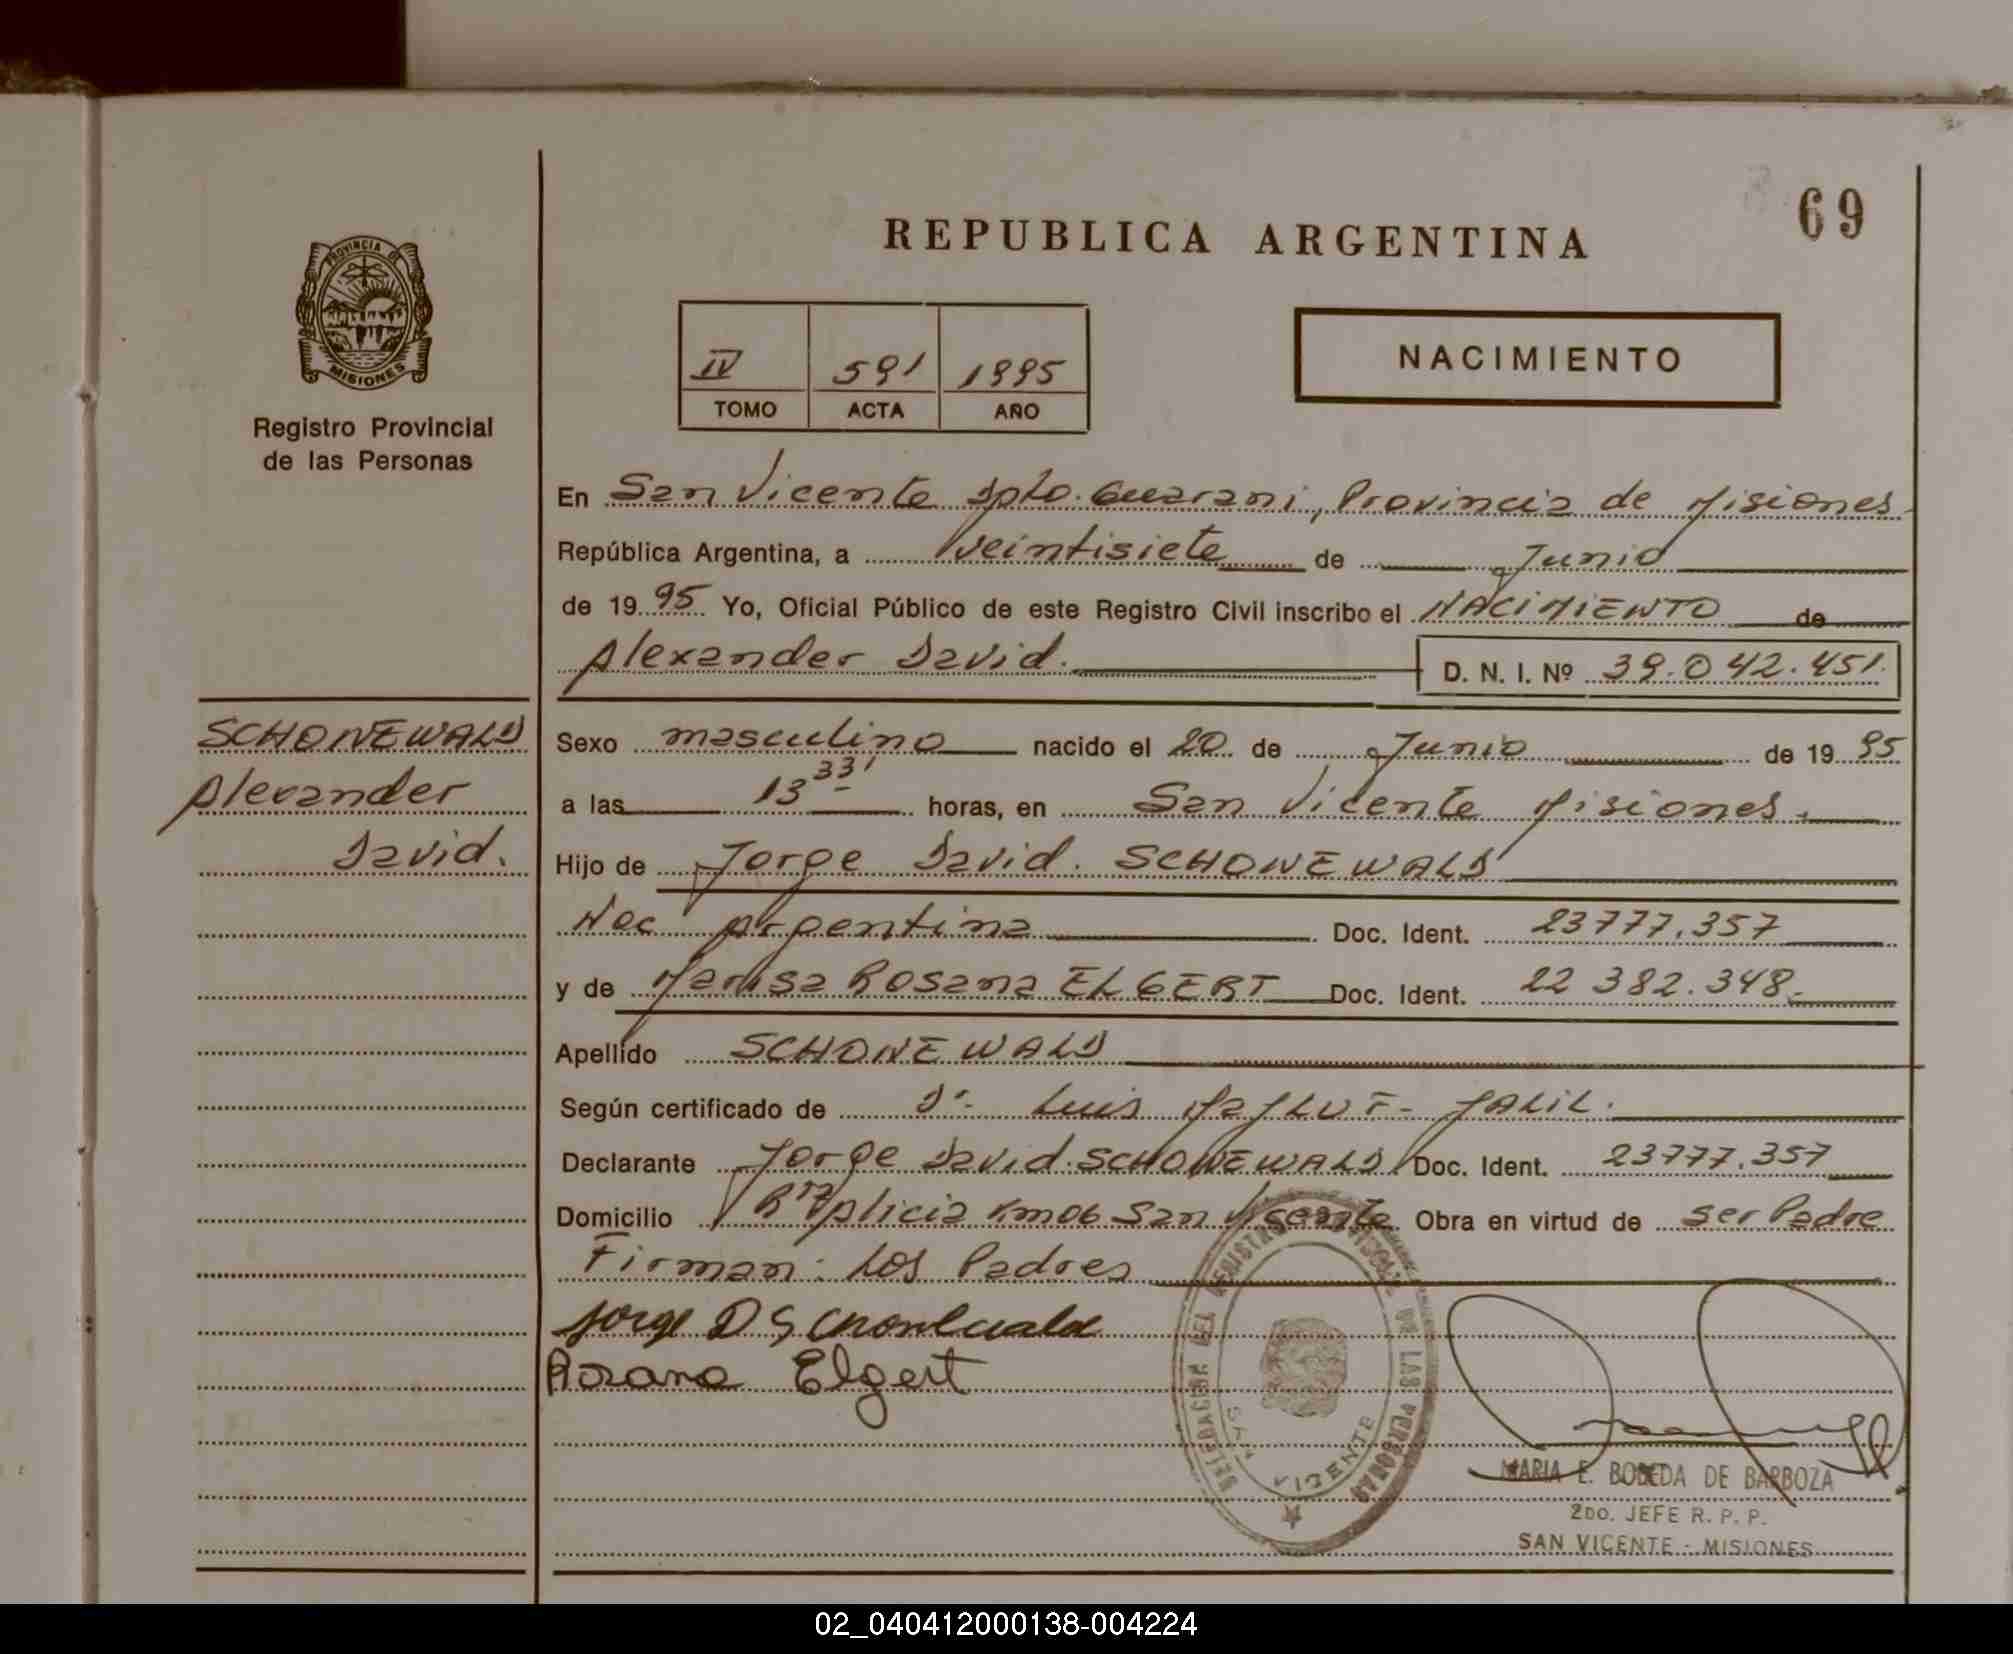 REPUBLICA ARGENTINA
69
PROVINCIA DE
MISIONES
Registro Provincial
de las Personas
IV 591 1995
TOMO ACTA AÑO
NACIMIENTO
En San Vicente Dpto. Guarani, Provincia de Misiones
República Argentina, a Veintisiete de Junio
de 1995 Yo, Oficial Público de este Registro Civil inscribo el NACIMIENTO de
Alexander David. D. N. I. Nº 39.042.451.
SCHONEWALD
Alexander
David.
Sexo masculino nacido el 20 de Junio de 1995
a las 13 33' horas, en San Vicente Misiones.
Hijo de Jorge David. SCHONEWALD
Nac Argentina Doc. Ident. 23777.357
y de Marisa Rosana ELGERT Doc. Ident. 22 382.348.
Apellido SCHONEWALD
Según certificado de Dr. Luis JALIL.
Declarante Jorge David SCHONEWALD Doc. Ident. 23777.357
Domicilio Alicia Km06 San Vicente Obra en virtud de ser Padre
Firman: Los Padres
Jorge D Schonewald
Rosana Elgert
DELEGACION DEL REGISTRO DE LAS PERSONAS
SAN VICENTE
MARIA E. BOBEDA DE BARBOZA
2DO. JEFE R. P. P.
SAN VICENTE - MISIONES
02_040412000138-004224